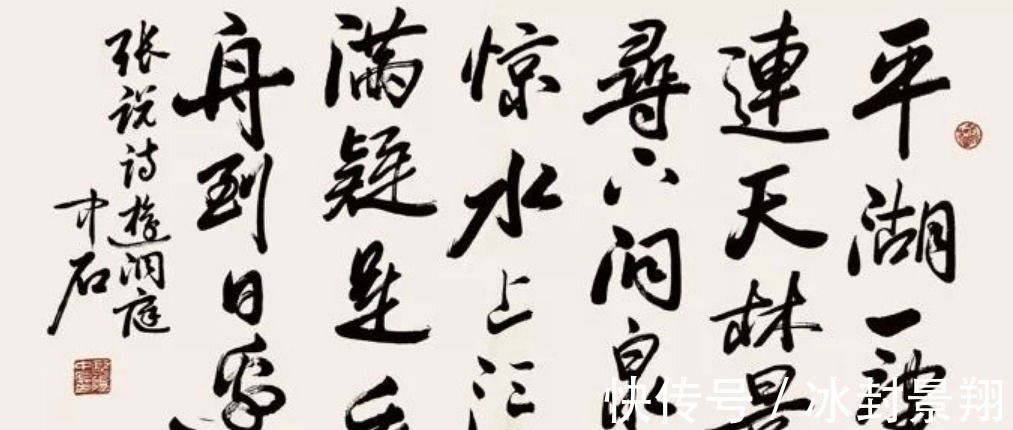 平湖一
連天林景
尋下洞泉
惊水上
满疑是乘
舟到日邊
张说诗遊洞庭
中石
快传号 / 冰封景翔